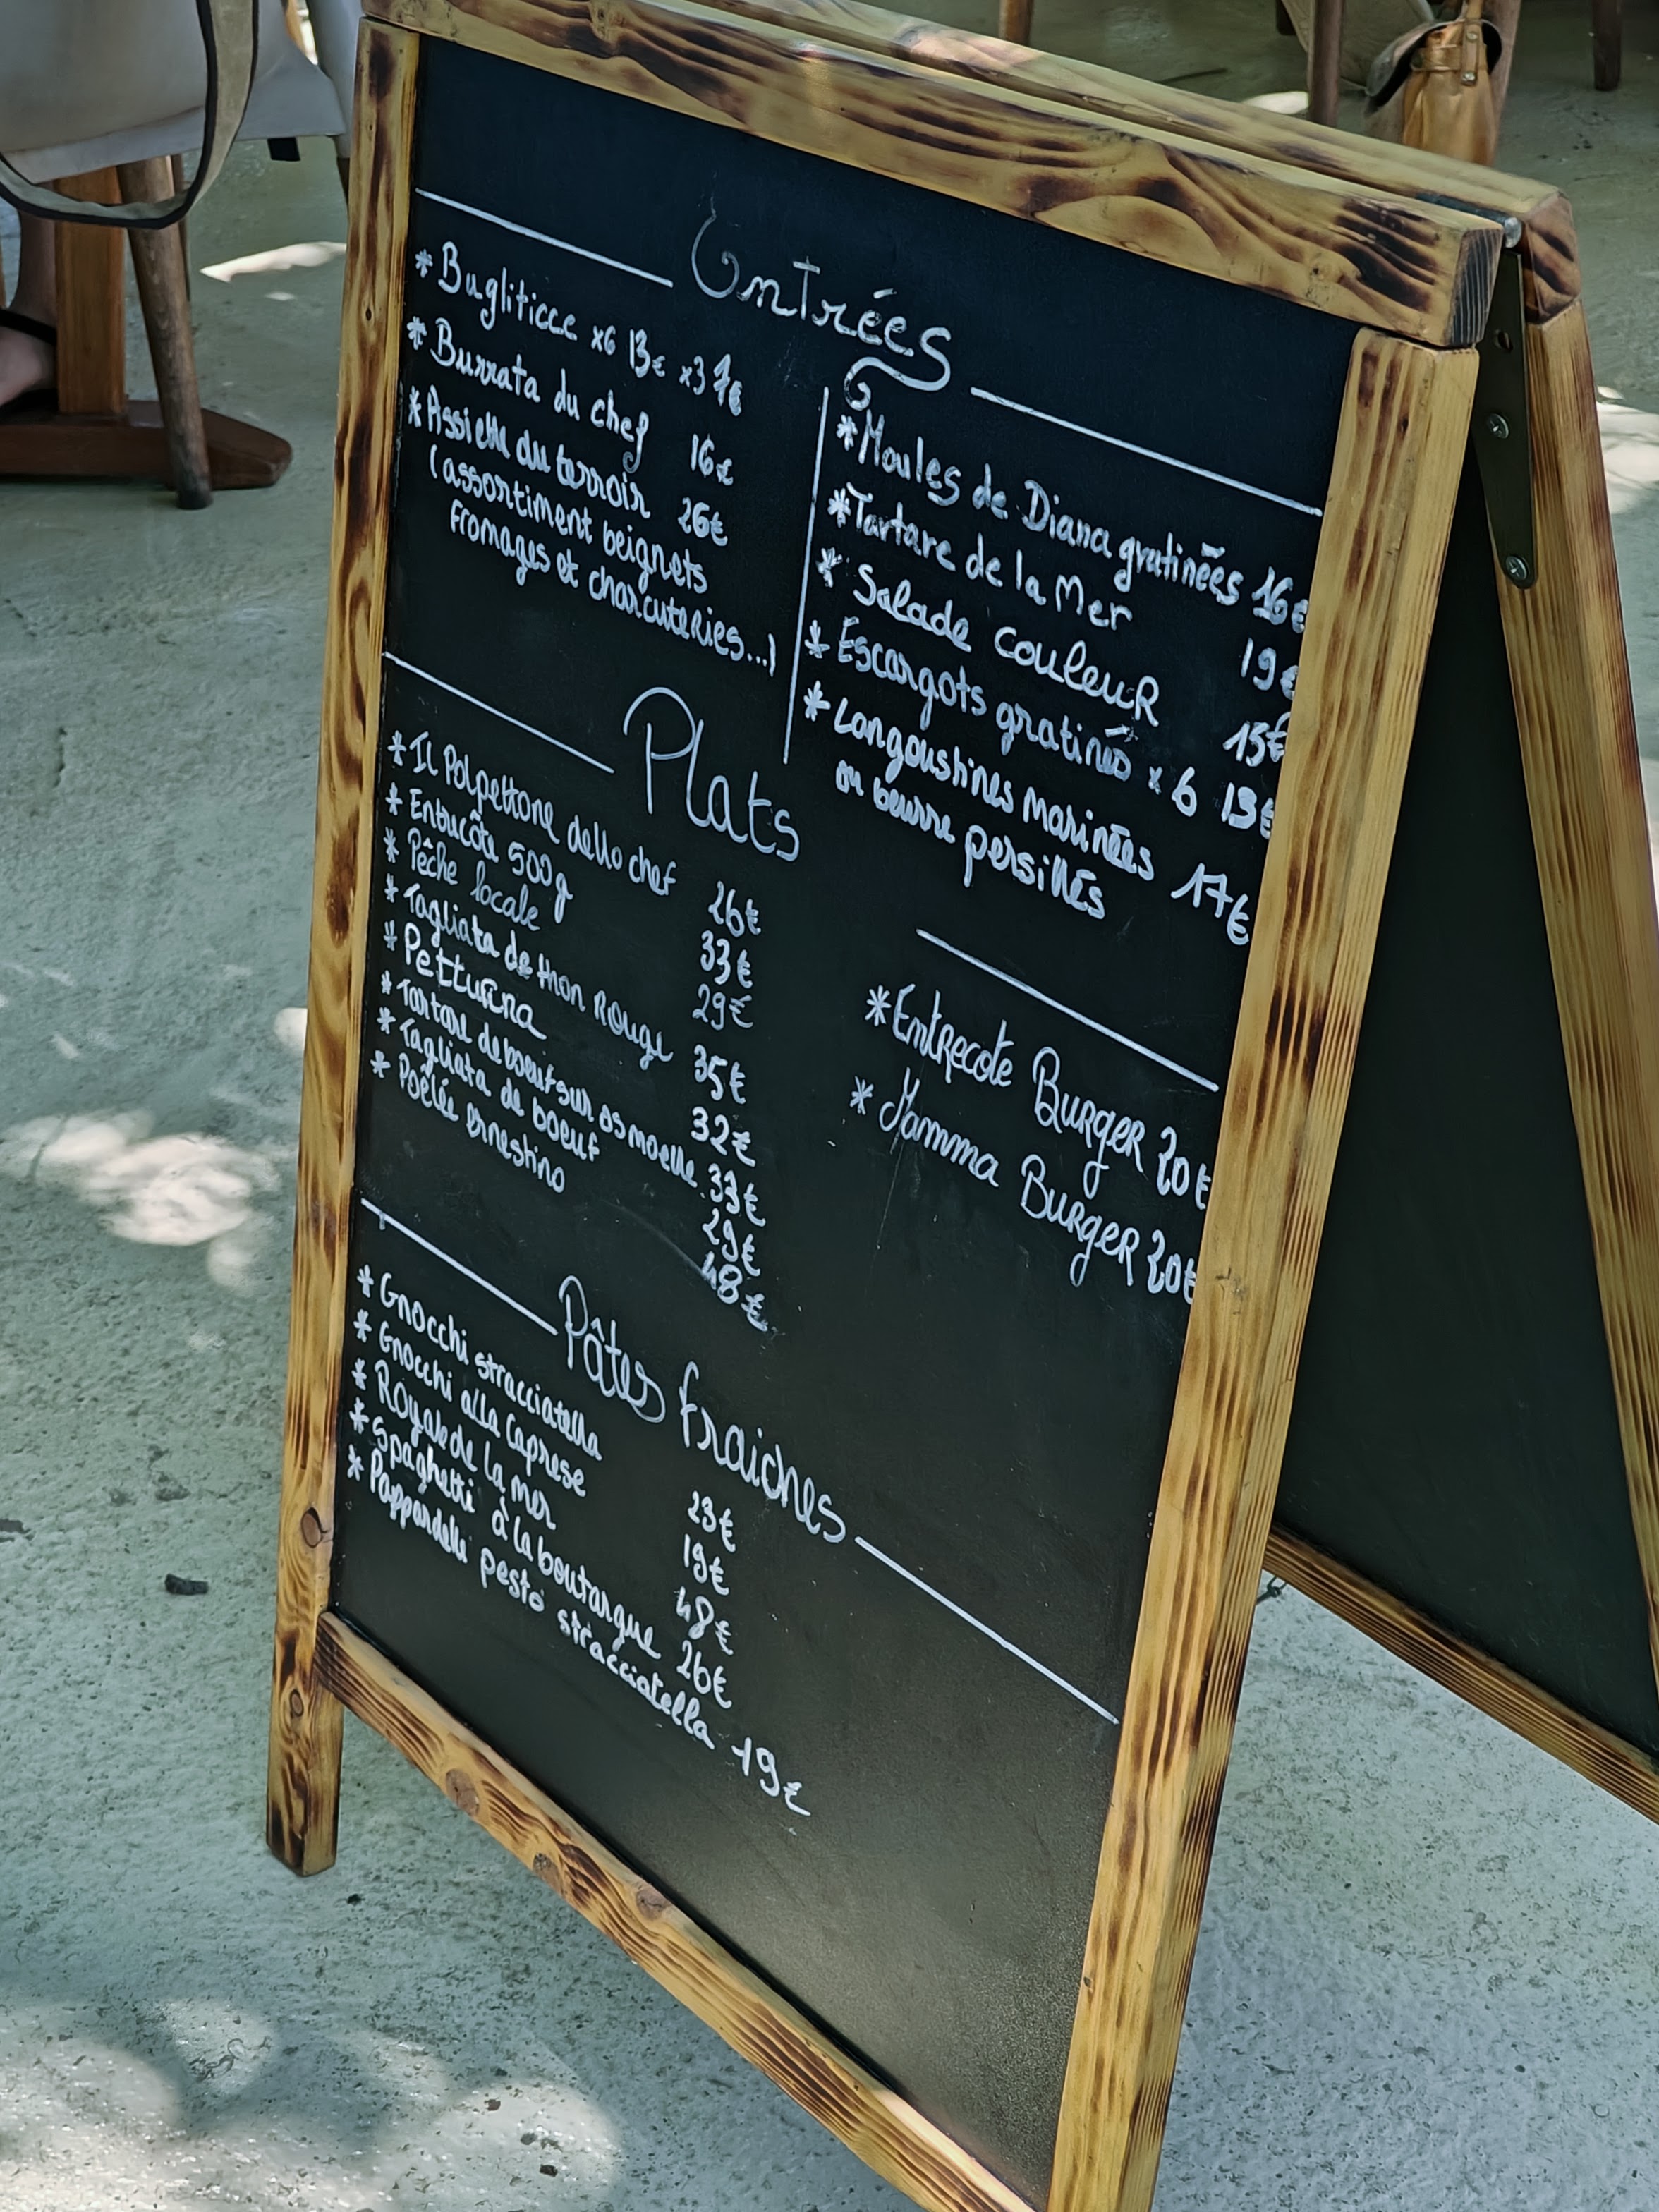 Entrées
* Bugliticce x6 13€ x3 7€
* Burrata du chef 16€
* Assiette du terroir 26€
(assortiment beignets
fromages et charcuteries...)
* Moules de Diana gratinées 16€
* Tartare de la Mer 19€
* Salade couleuR 15€
* Escargots gratinés x 6 13€
* Langoustines marinées 17€
au beurre persillés
Plats
* IL Polpettone dello chef 26€
* Entrecôte 500g 33€
* Pêche locale 29€
* Tagliata de thon Rouge 35€
* Petturina 32€
* Tartare de boeuf sur os moelle 33€
* Tagliata de boeuf 29€
* Poêlée ernestino 48€
* Entrecote BurgeR 20€
* Mamma BurgeR 20€
Pâtes fraiches
* Gnocchi stracciatella 23€
* Gnocchi alla Caprese 19€
* Royale de la mer 48€
* Spaghetti à la boutargue 26€
* Pappardelle pesto stracciatella 19€